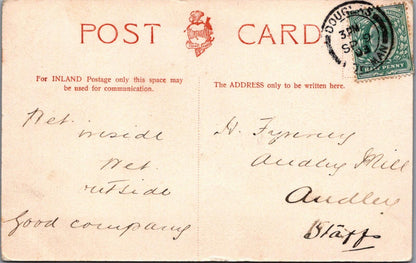 POST CARD
For INLAND Postage only this space may
be used for communication.
The ADDRESS only to be written here.
Wet
inside
Wet
outside
Good company
H.
Audley Mill
Audley
Staffs
DOUGLAS
HALF PENNY